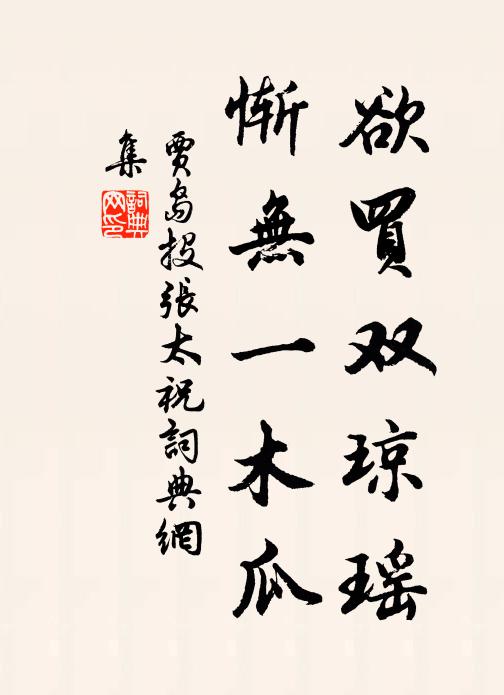 欲買双琼瑶
惭無一木瓜
賈島投張太祝詞典網
集
詞典網印